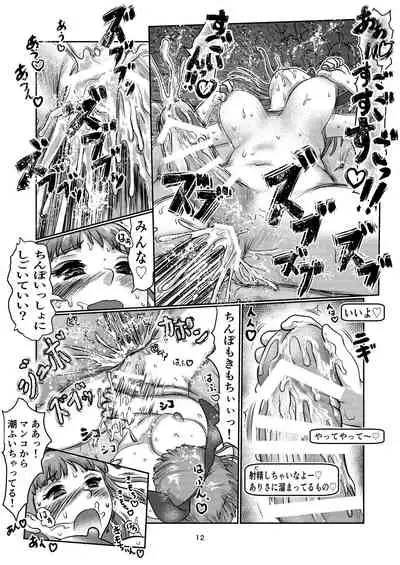 おおっ♡
すごすすぎっ!!
すごいいんっ♡
あっ♡
あうっ♡
あうん♡
ズブブッ
ズブブッ
ズブブブッ
ズブッ
ズブブッ
みんな♡
ちんぽいっしょに
しごいていい?
いいよ♡
ニギ
やってやって〜♡
射精しちゃいなよー♡
ありさに溜まってるもの♡
ちんぽもきもちぃぃっ!
カポン
シュボ
ズブッ
シコ
シコ
シコ
ああっ!
マンコから
潮ふいちゃってる!
12